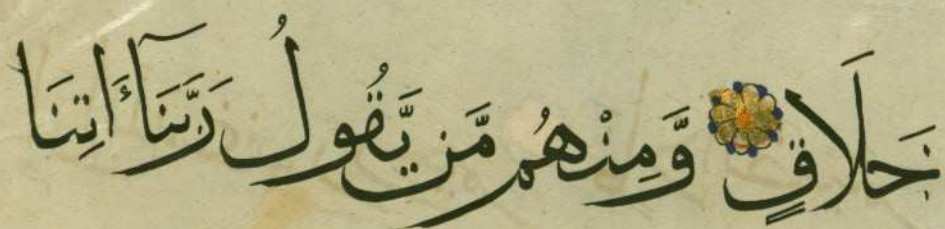 خَلَاقٍ وَّمِنْهُم مَّن يَّقُولُ رَبَّنَآ ءَاتِنَا